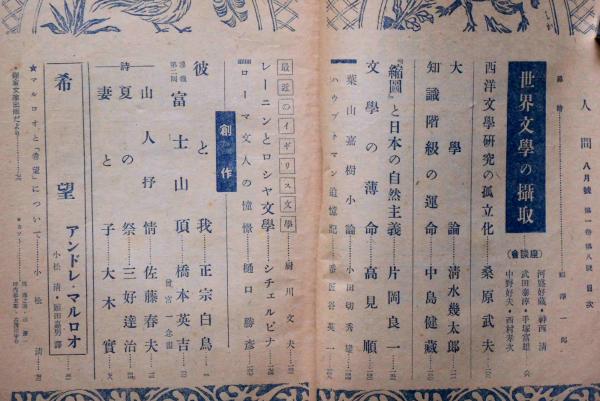 人間 八月號 第一卷第八號 目次
世界文學の攝取
(座談會)
河盛好藏・神西清
武田泰淳・手塚富雄
中野好夫・西村孝次
西洋文學研究の孤立化……桑原武夫
大學論……清水幾太郎
知識階級の運命……中島健藏
『縮圖』と日本の自然主義……片岡良一
文學の薄命……高見順
葉山嘉樹小論……小田切秀雄
ハウプトマン追憶記……番匠谷英一
最近のイギリス文學……廚川文夫
レーニンとロシヤ文學……シチェルビナ
ローマ文人の憧憬……樋口勝彦
創作
彼と我……正宗白鳥
富士山頂……橋本英吉
山人抒情……佐藤春夫
詩
夏の祭……三好達治
妻と子……大木實
希望 アンドレ・マルロオ
小松清・譯
★マルロオと『希望』について……小松清